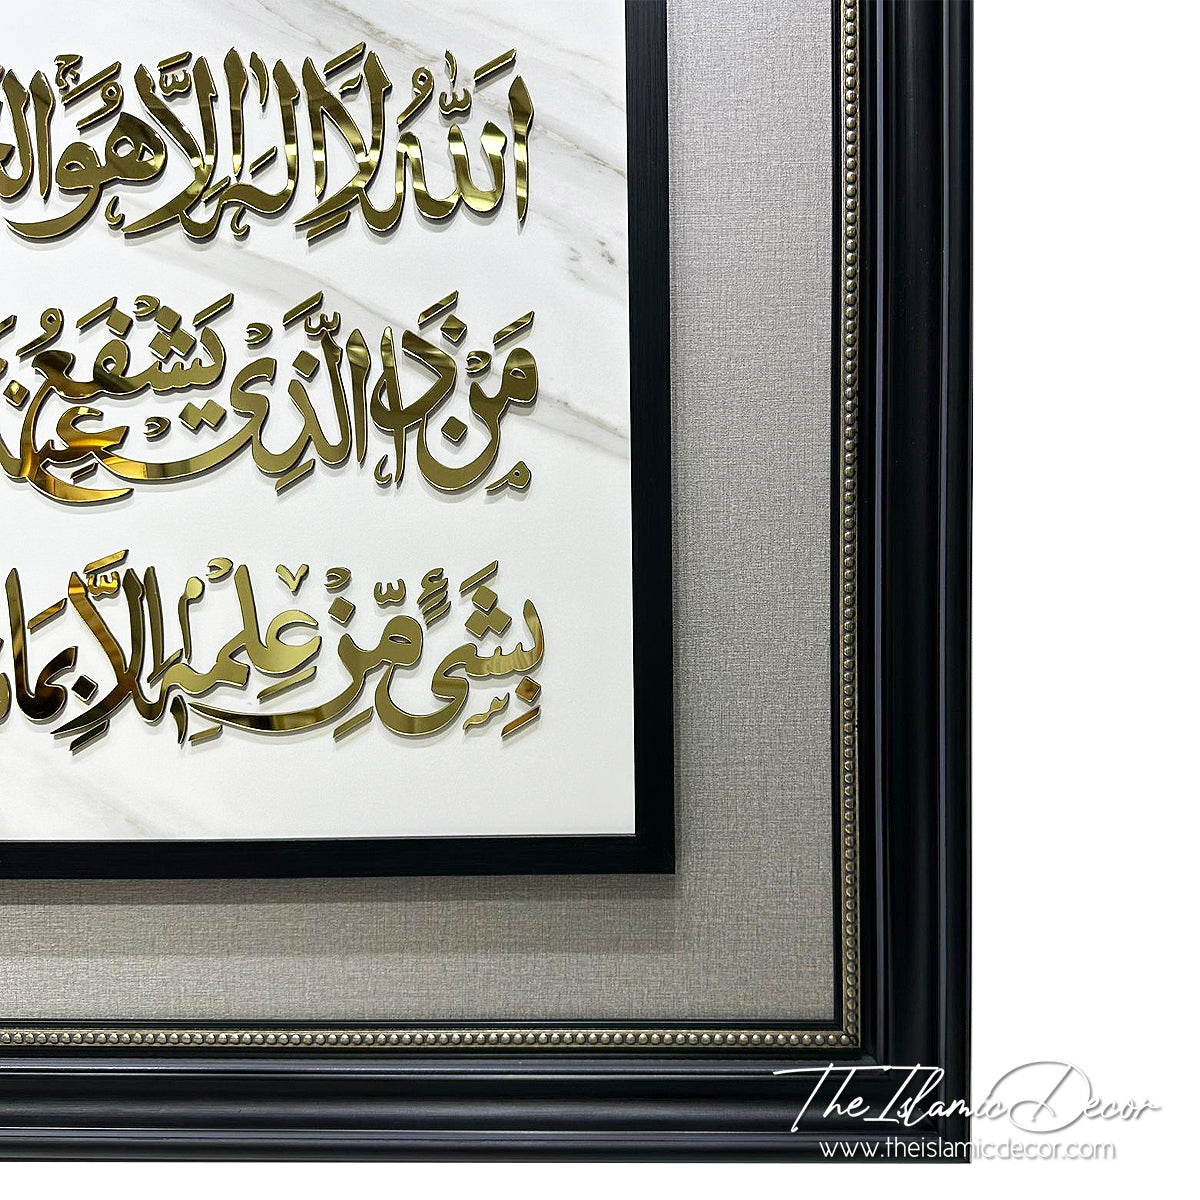 اللَّهُ لَا إِلَٰهَ إِلَّا هُوَ
مَنْ ذَا الَّذِي يَشْفَعُ
بِشَيْءٍ مِّنْ عِلْمِهِ إِلَّا بِمَا
The Islamic Decor
www.theislamicdecor.com